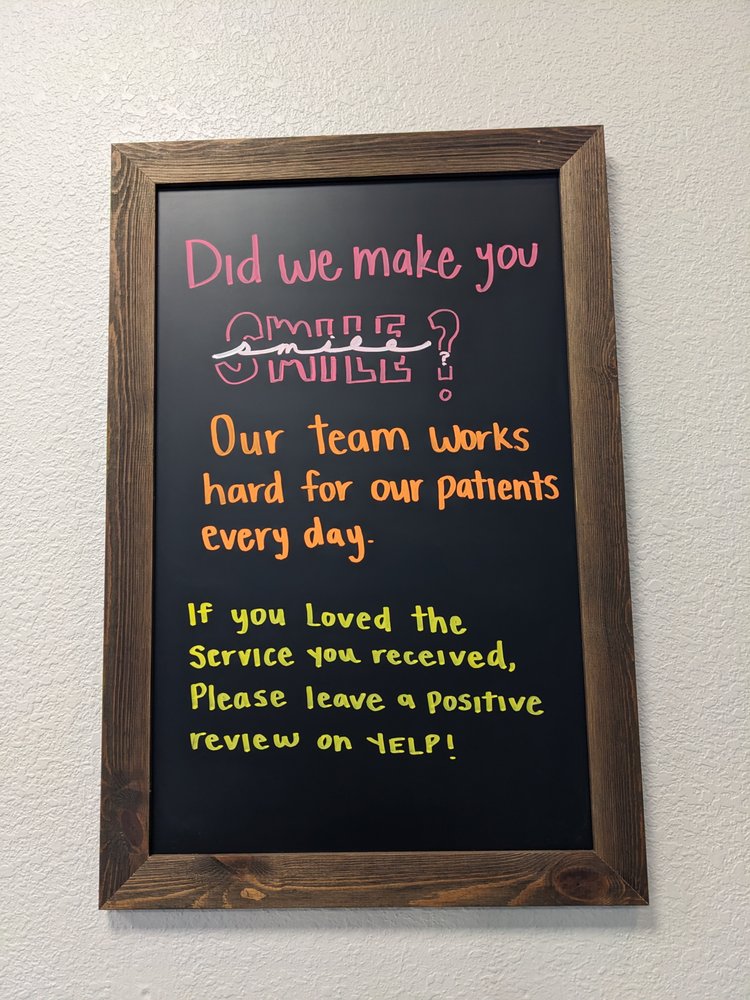 Did we make you
SMILE?
smile?
Our team works
hard for our patients
every day.
If you Loved the
Service you received,
Please leave a positive
review on YELP!